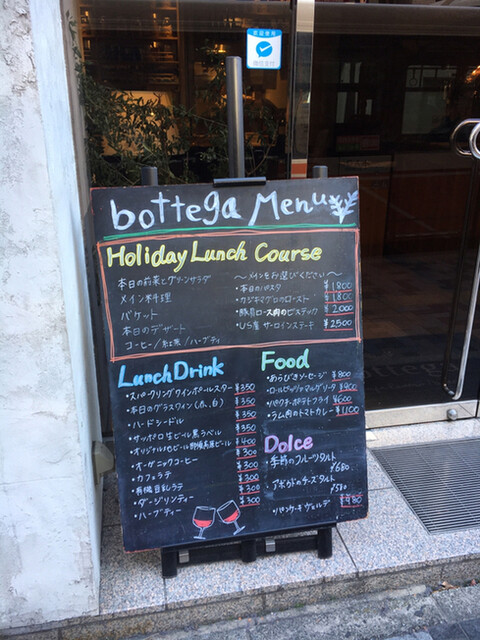 欢迎使用
微信支付
bottega Menu
Holiday Lunch Course
本日の前菜とグリーンサラダ
メイン料理
バケット
本日のデザート
コーヒー/紅茶/ハーブティ
〜メインをお選びください〜
・本日のパスタ ¥1800
・カジキマグロのロースト ¥1800
・豚肩ロース肉のビステッカ ¥2000
・US産サーロインステーキ ¥2500
Lunch Drink
・スパークリングワインポールスター ¥350
・本日のグラスワイン(赤、白) ¥350
・ハードシードル ¥350
・サッポロ生ビール黒ラベル ¥350
¥400
・オーガニックコーヒー ¥300
・カフェラテ ¥300
・有機豆乳ラテ ¥300
・ダージリンティー ¥300
・ハーブティー ¥300
Food
・あらびきソーセージ ¥800
¥900
¥600
・ラム肉のトマトカレー ¥1,100
Dolce
・季節のフルーツタルト
¥680
・アボカドのチーズタルト
¥580
・パンケーキヴェルデ ¥980